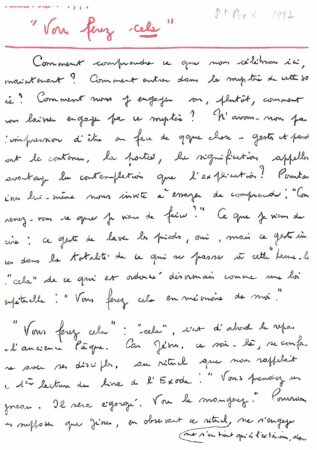 St Pie X 1992
"Vous ferez cela"
Comment comprendre ce que nous célébrons ici,
maintenant ? Comment entrer dans le mystère de cette
? Comment nous y engager ou, plutôt, comment
laisser engager par ce mystère ? N'avons-nous pas
impression d'être en face de qque chose - geste et
ont le contenu, la portée, la signification appelle
avantage la contemplation que l'explication ? Pourtant
lui-même nous invite à essayer de comprendre : "Com
enez-vous ce que je viens de faire ?" Ce que je viens de
ire : ce geste de laver les pieds, oui, mais ce geste in
us dans la totalité de ce qui se passe à cette "heure-là
"cela" de ce qui est ordonné désormais comme une loi
: "Vous ferez cela en mémoire de moi".
"Vous ferez cela" : "cela", c'est d'abord le repas
l'ancienne Pâque. Car Jésus, ce soir-là, se confor
avec ses disciples, au rituel que nous rappelait
1ère lecture du livre de l'Exode : "Vous prendrez un
gneau. Il sera égorgé. Vous le mangerez." Pouvons
us supposer que Jésus, en observant ce rituel, ne s'engage
ne s'en tient qu'à l'extérieur,